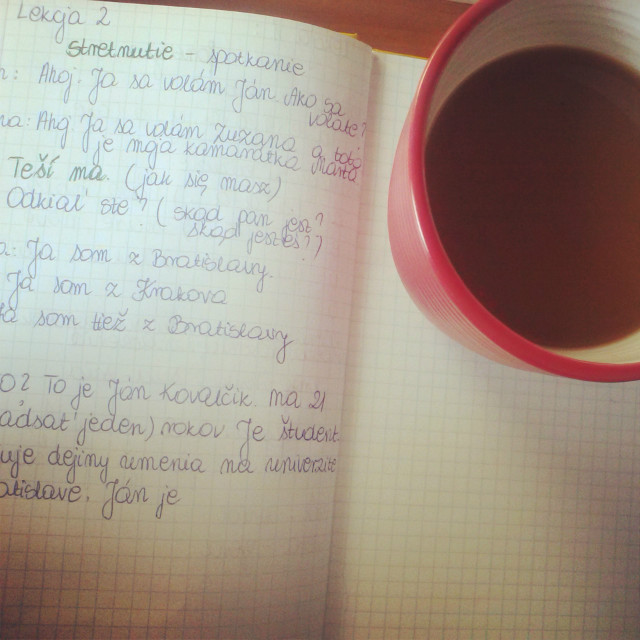 Lekcja 2
Stretnutie - spotkanie
n: Ahoj. Ja sa volám Ján. Ako sa
voláte?
na: Ahoj. Ja sa volám Zuzana a toto
je moja kamarátka Marta
Teší ma. (jak się masz)
Odkiaľ ste? (skąd pan jest?
skąd jesteś?)
a: Ja som z Bratislavy.
Ja som z Krakova
som tiež z Bratislavy
O? To je Ján Kovalčik má 21
adsať jeden) rokov. Je študent
uje dejiny umenia na univerzite
atislave. Ján je